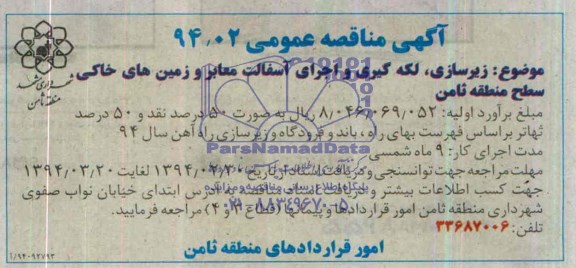 آگهی مناقصه عمومی ۹۴٫۰۲
شهرداری مشهد
منطقه ثامن
موضوع: زیرسازی، لکه گیری و اجرای آسفالت معابر و زمین های خاکی سطح منطقه ثامن
مبلغ برآورد اولیه: ۸٫۰۴۶٫۰۶۹٫۰۵۲ ریال به صورت ۵۰ درصد نقد و ۵۰ درصد
تهاتر براساس فهرست بهای راه، باند و فرودگاه و زیرسازی راه آهن سال ۹۴
مدت اجرای کار: ۹ ماه شمسی
مهلت مراجعه جهت توانسنجی و دریافت اسناد از تاریخ ۱۳۹۴٫۰۲٫۳۰ لغایت ۱۳۹۴٫۰۳٫۲۰
جهت کسب اطلاعات بیشتر و دریافت اسناد مناقصه به آدرس ابتدای خیابان نواب صفوی
شهرداری منطقه ثامن امور قراردادها و پیمانها مراجعه فرمایید.
تلفن: ۳۳۶۸۷۰۰۶
امور قراردادهای منطقه ثامن
ParsNamadData
پایگاه اطلاع رسانی مناقصه و مزایده
۰۲۱-۸۸۳۴۹۶۷۰-۵